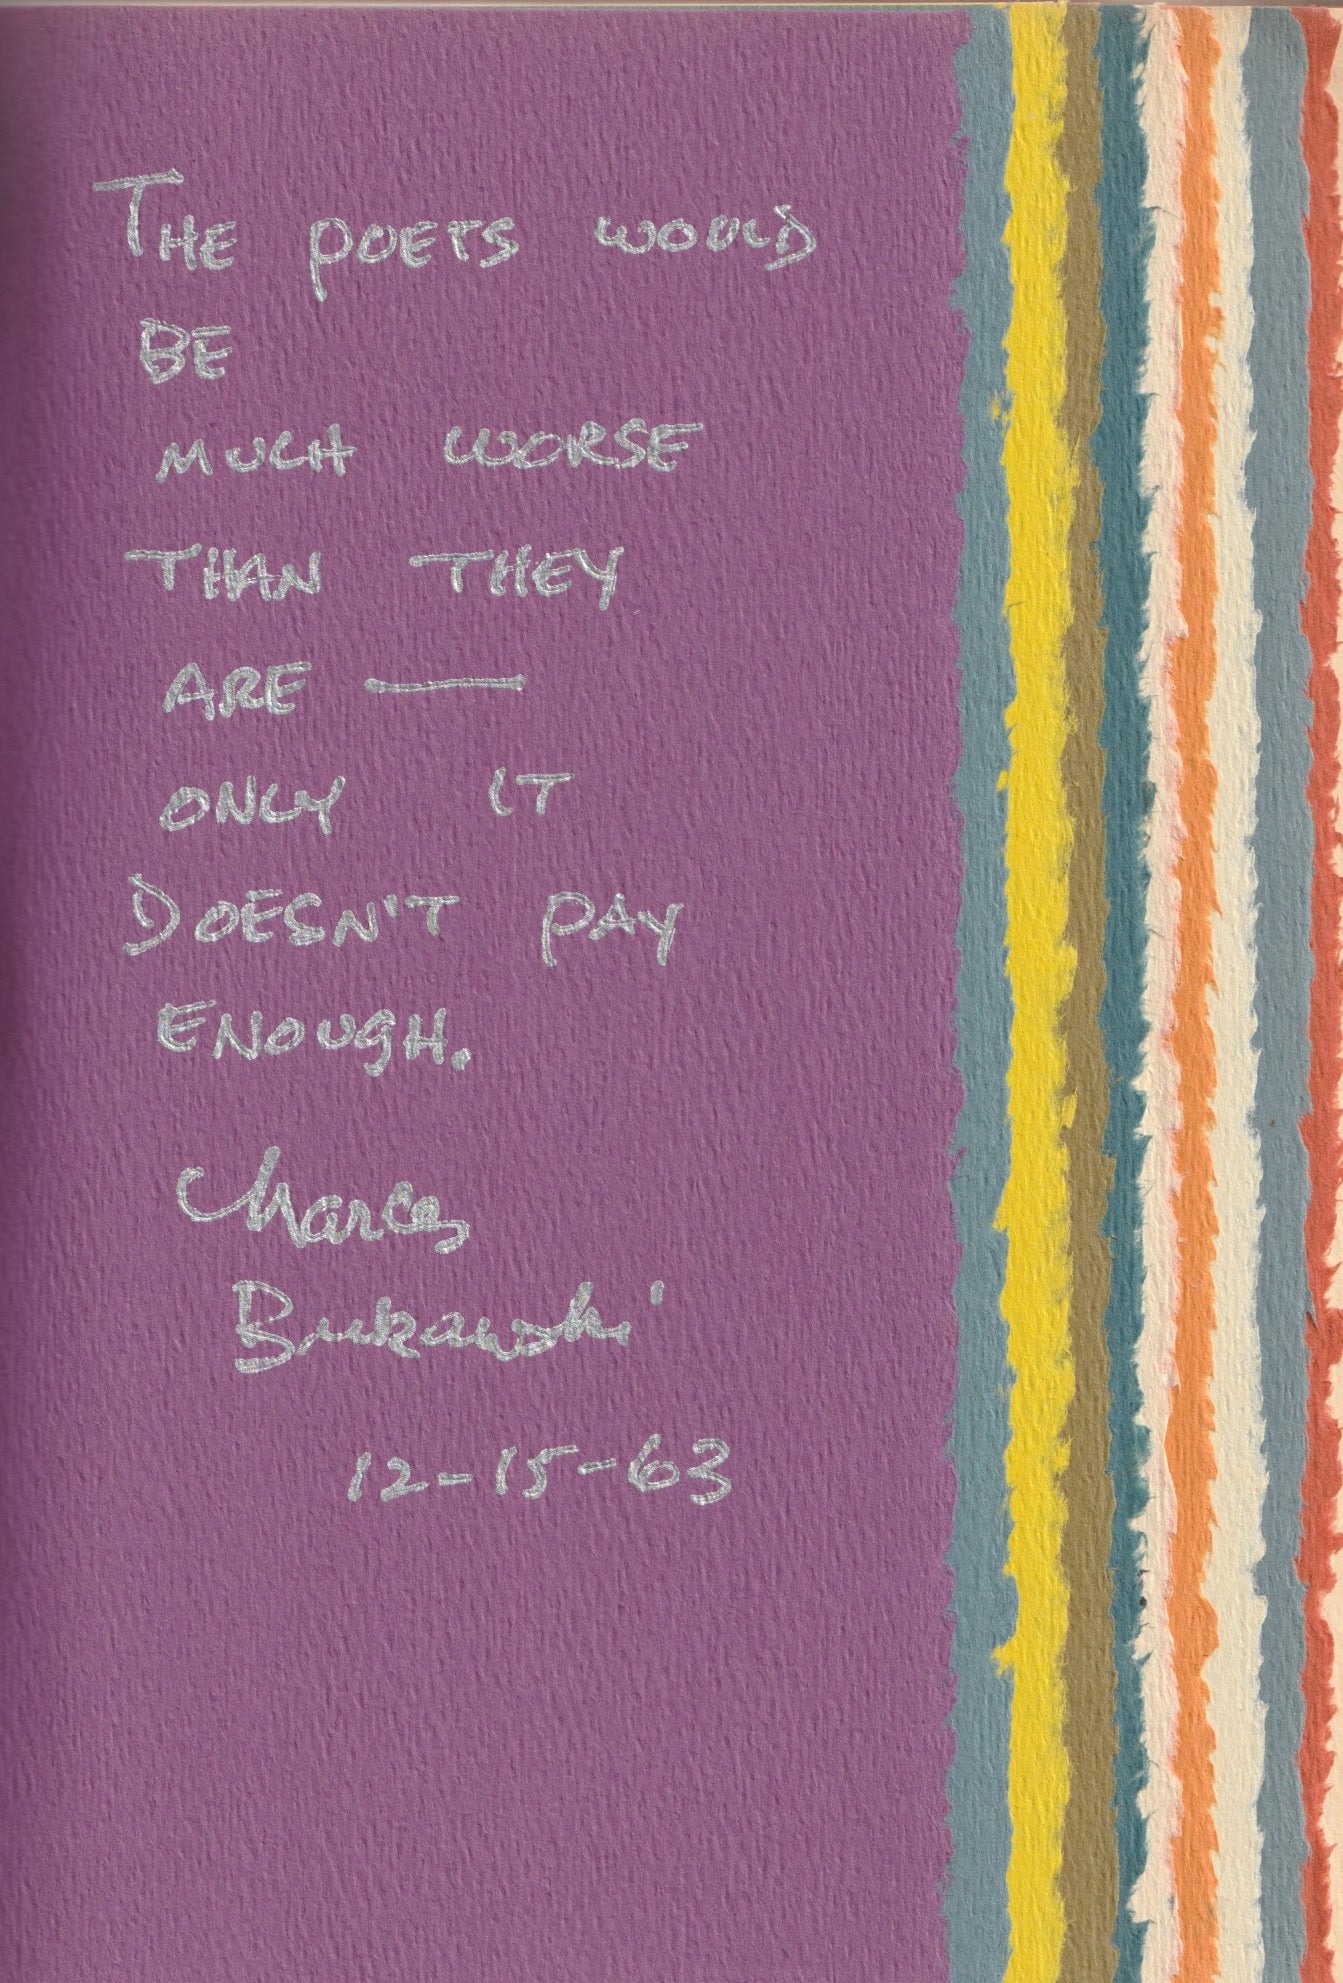 THE POETS WOULD
BE
MUCH WORSE
THAN THEY
ARE —
ONLY IT
DOESN'T PAY
ENOUGH.
Charles
Bukowski
12-15-63